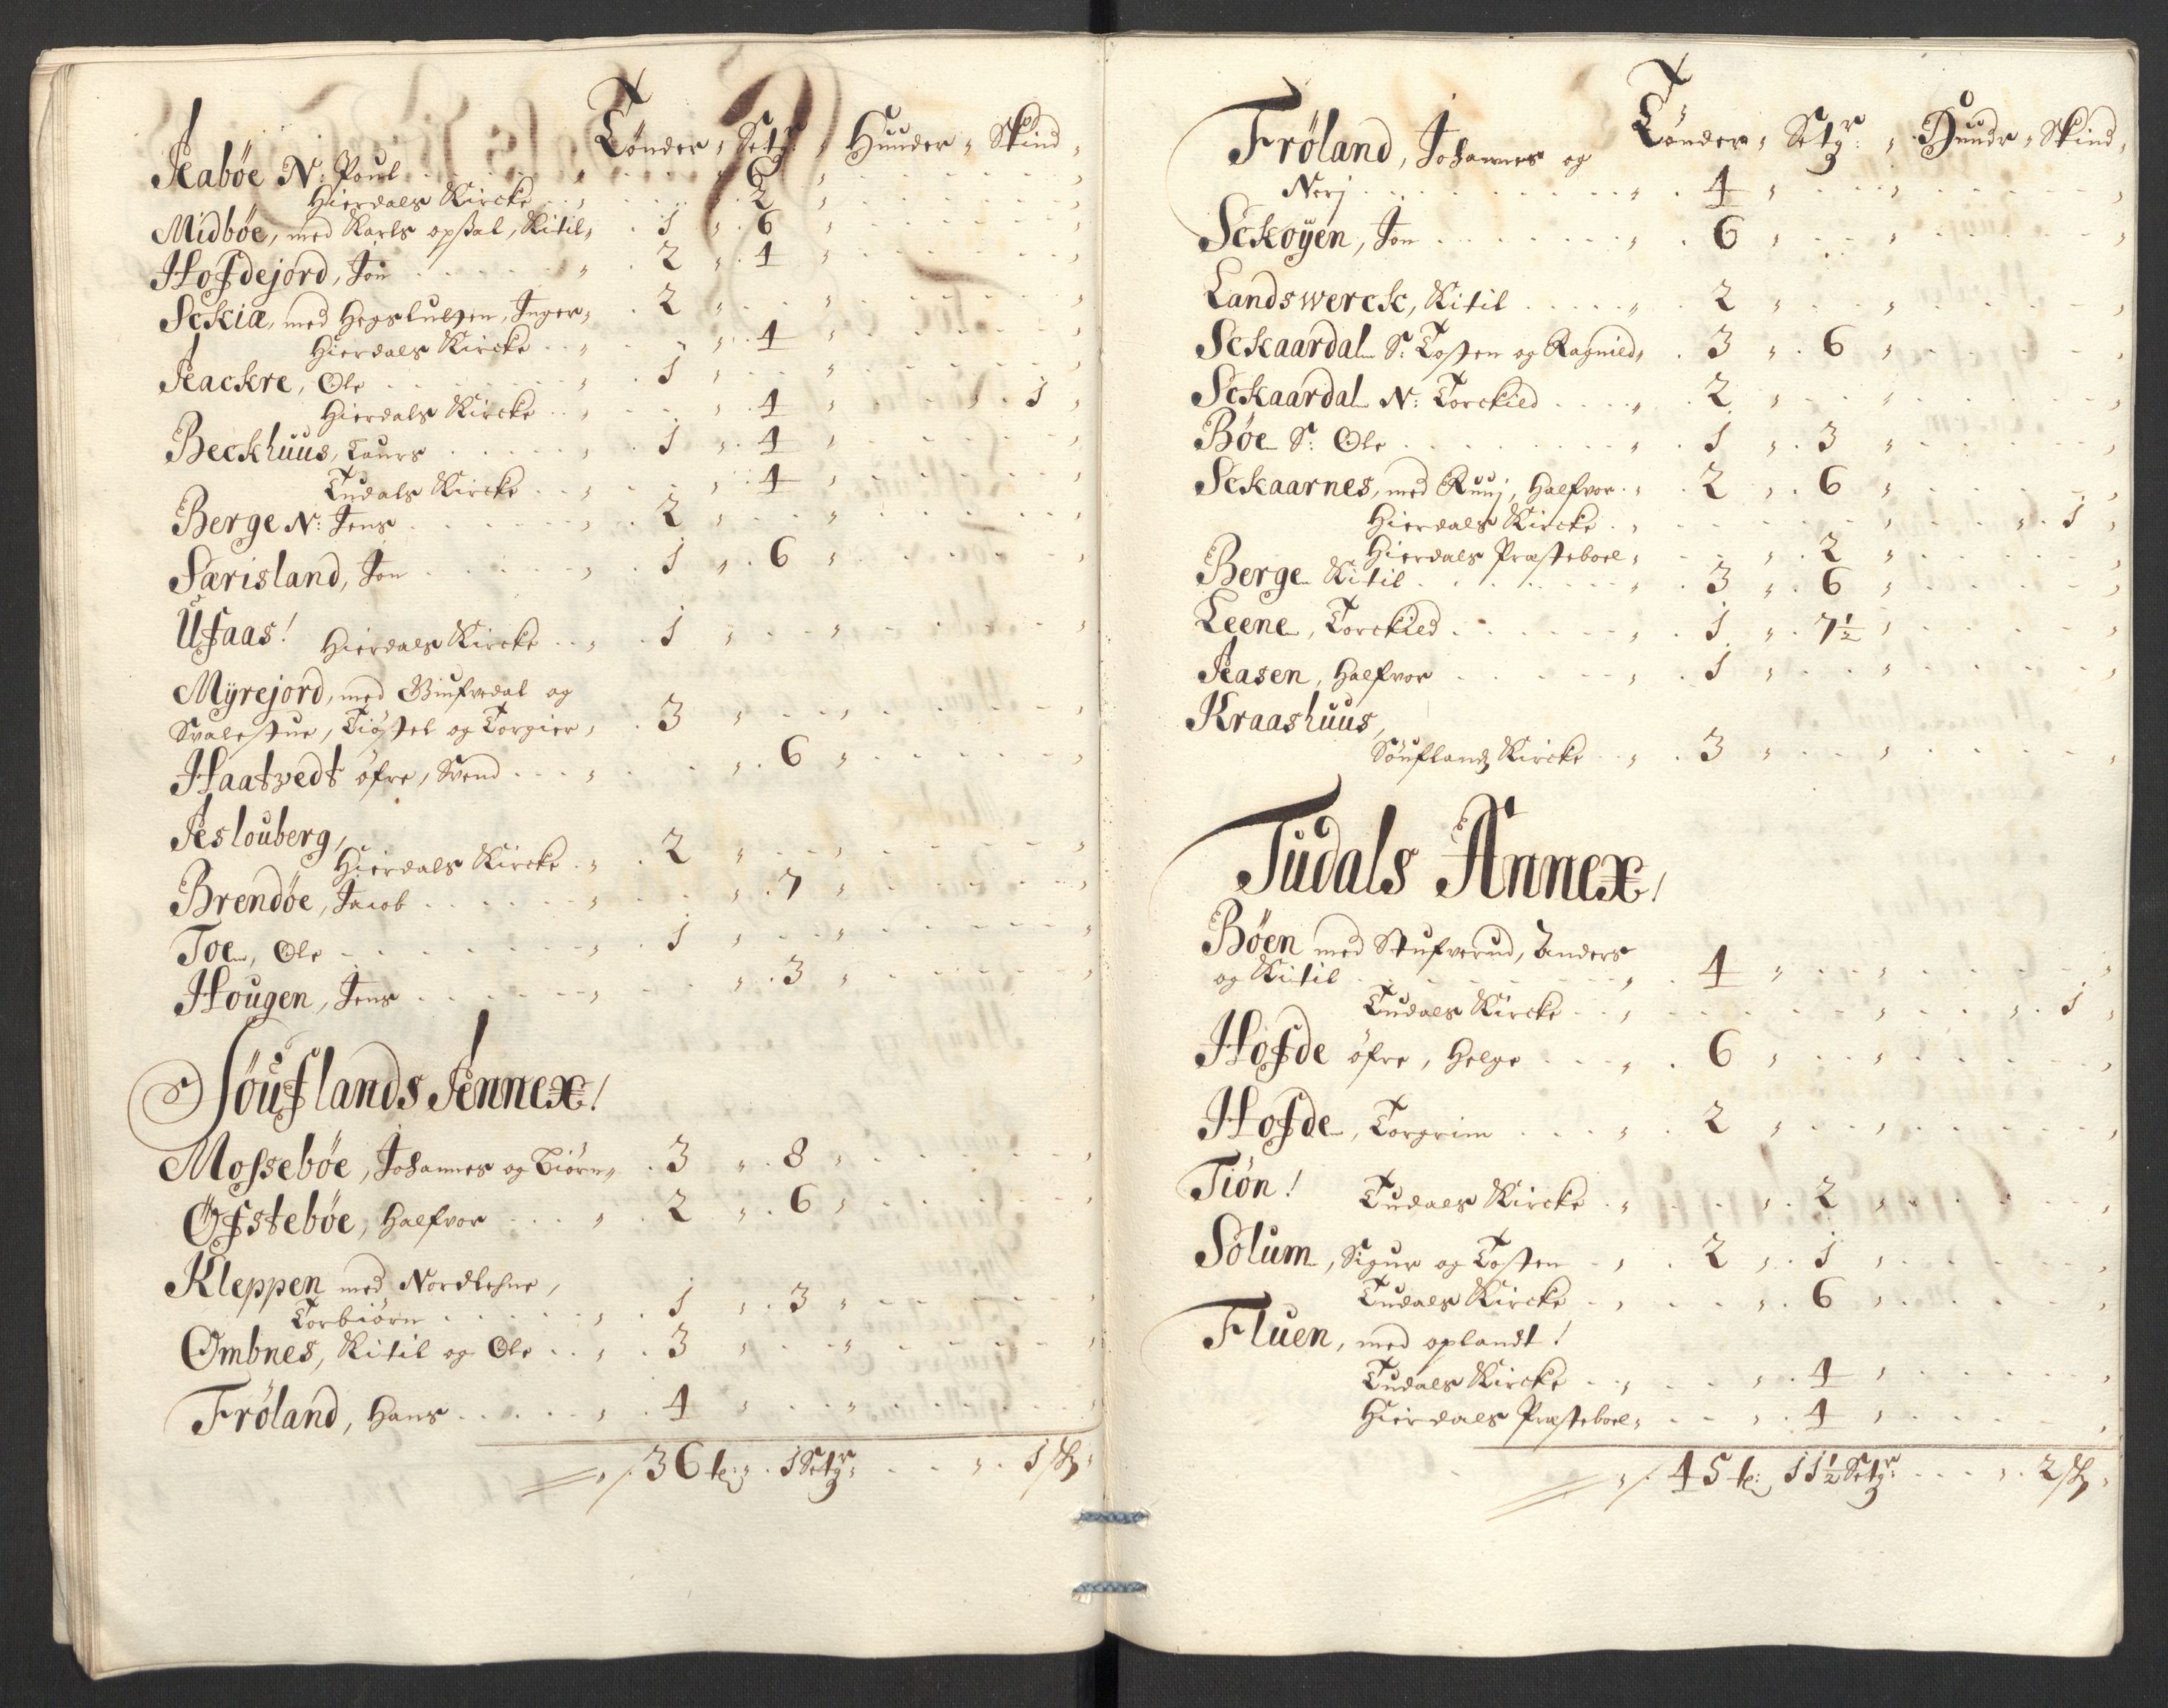 Tönder, Setg: Hünder, Skind,
Aabøe N: Poül . . . 6
Hierdals Kircke . . . 2
Midbøe, med Karls opsal, Kitil, 1 , 6
Hofdejord, Jon . . . 2 , 4
Sckia, med , Inger, 2
Hierdals Kircke . . . 4
Aackre, Ole . . . 1
Hierdals Kircke . . . 4 , 1
Beckhuus, Laurs . . . 1 , 4
Tudals Kircke . . . 4
Berge N: Jens . . . 2
Særisland, Jon . . . 1 , 6
Ufaas! Hierdals Kircke . . . 1
Mÿrejord, med og
Svalestue, Tiöstel og Torgier, 3
Haatvedt öfre, Svend . . . 6
Aslouberg,
Hierdals Kircke . . . 2
Brendøe, Jacob . . . 7
Toe, Ole . . . 1
Hougen, Jens . . . 3
Söuflands Annex!
Mossebøe, Johannes og Biörn, 3 , 8
Öfstebøe, Halfvor . . . 2 , 6
Kleppen med Nordlehne,
Torbiörn . . . 1 , 3
Ombnes, Kitil og Ole . . . 3
Fröland, Hans . . . 4
36 t: 1 Setgr: . . . 1 sk
Tönder, Setgr: , Hundr, Skind,
Fröland, Johannes og
Nerj . . . 4
Sckoÿen, Jon . . . 6
Landswerck, Kitil . . . 2
Sckaardal S: Tosten og Ragnild, 3 , 6
Sckaardal N: Torckild . . . 2
Bøe S: Ole . . . 1 , 3
Sckaarnes, med Ruuj, Halfvor . 2 , 6
Hierdals Kircke . . . 1
Hierdals Præsteboel, . . . 2
Berge Kitil . . . 3 , 6
Leene, Torckild . . . 1 , 7½
Aasen, Halfvor . . . 1
Kraashuus,
Söuflandz Kircke . . . 3
Tudals Annex!
Bøen med Stufverud, Anders
og Kitil . . . 4
Tudals Kircke . . . 1
Hofde öfre, Helge . . . 6
Hofde, Torgrim . . . 2
Tiön! Tudals Kircke . . . 2
Solum, Sigur og Tosten . 2 , 1
Tudals Kircke . . . 6
Fluen, med oplandt!
Tudals Kircke . . . 4
Hierdals Præsteboel, . . . 4
45 t: 11½ Setgr: . . . 2 sk